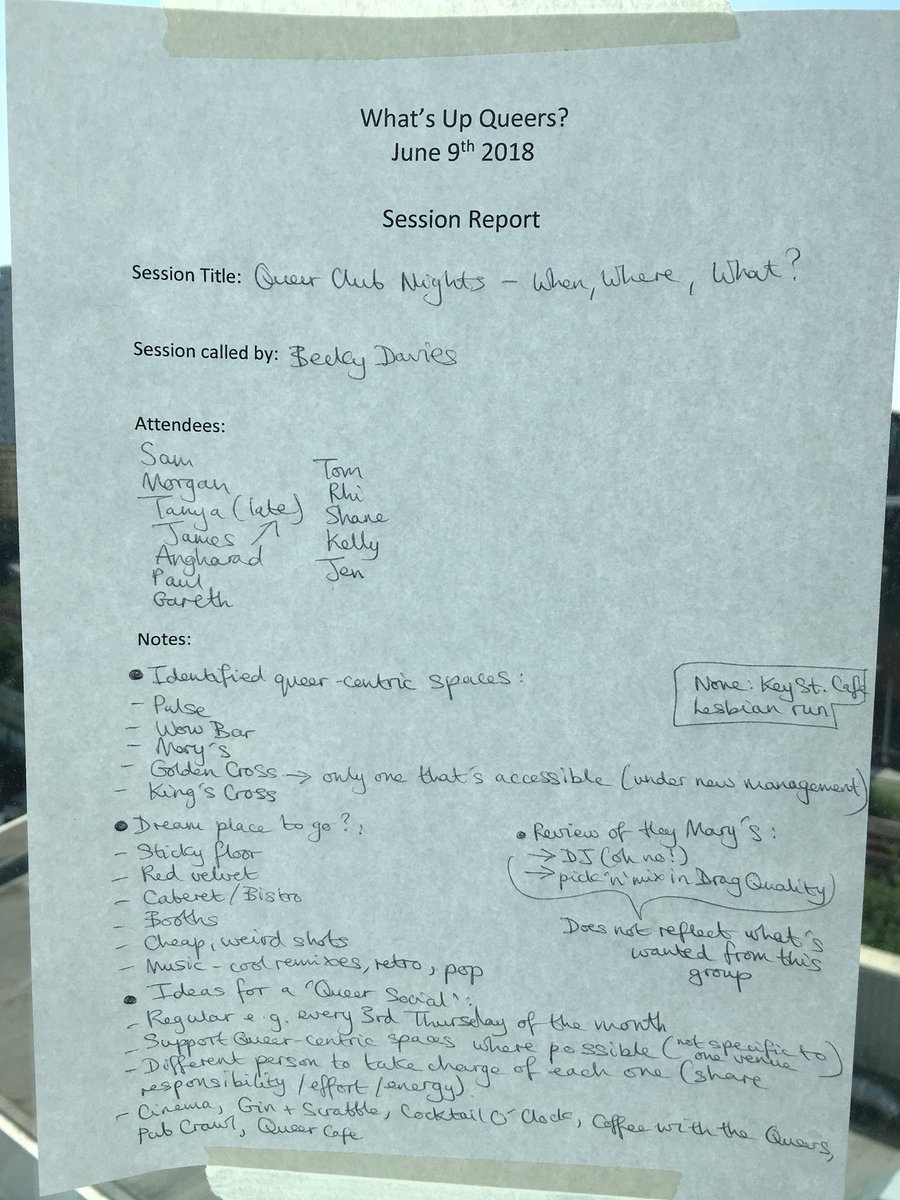 What's Up Queers?
June 9th 2018
Session Report
Session Title: Queer Club Nights – When, Where, What?
Session called by: Becky Davies
Attendees:
Sam
Morgan
Tanya (late)
James ↗
Angharad
Paul
Gareth
Tom
Rhi
Shane
Kelly
Jen
Notes:
• Identified queer-centric spaces:
– Pulse
– Wow Bar
– Mary's
– Golden Cross → only one that's accessible (under new management)
– King's Cross
None: Key St. Café
Lesbian run
• Dream place to go?:
– Sticky floor
– Red velvet
– Caberet / Bistro
– Booths
– Cheap, weird shots
– Music – cool remixes, retro, pop
• Review of Hey Mary's:
→ DJ (oh no!)
→ pick 'n' mix in Drag Quality
Does not reflect what's
wanted from this
group
• Ideas for a 'Queer Social':
– Regular e.g. every 3rd Thursday of the month
– Support Queer-centric spaces where possible (not specific to one venue)
– Different person to take charge of each one (share
responsibility / effort / energy)
– Cinema, Gin + Scrabble, Cocktail O'Clock, Coffee with the Queers,
Pub Crawl, Queer Cafe